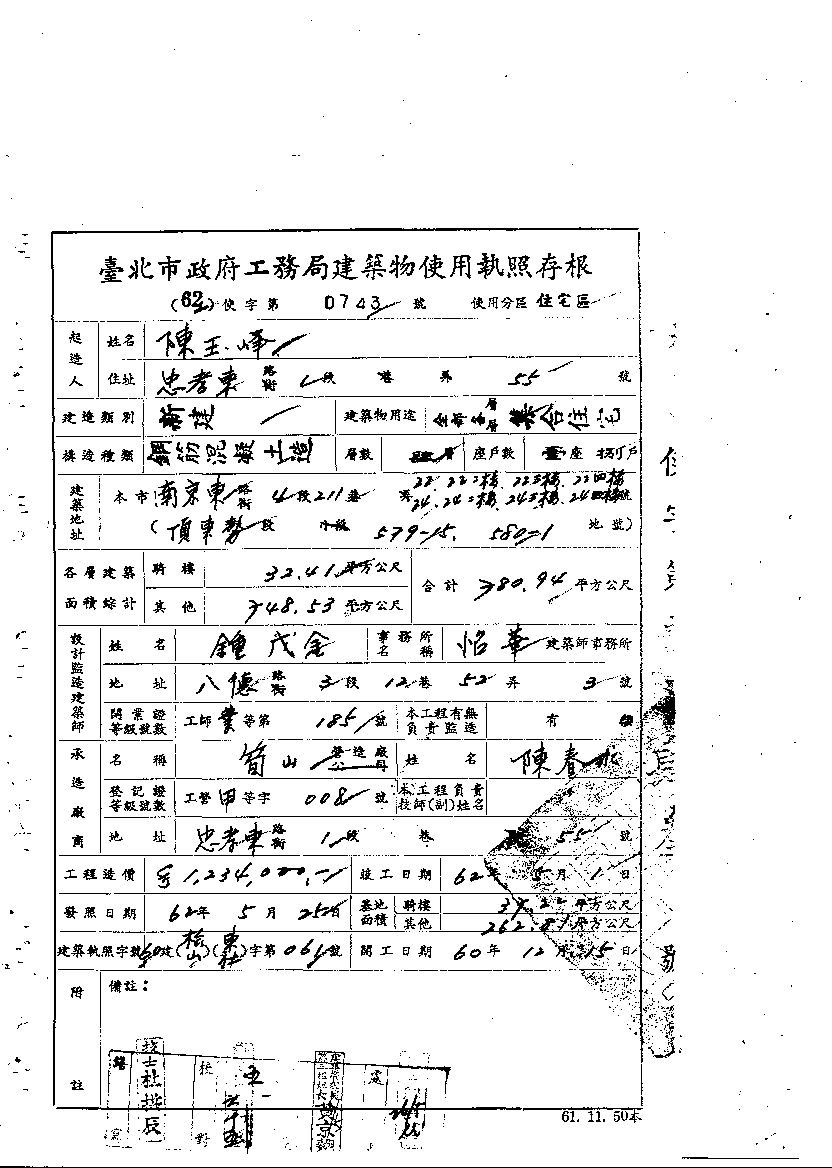 臺北市政府工務局建築物使用執照存根
(62)使字第 0743 號 使用分區 住宅區
起造人 姓名 陳玉峰
住址 忠孝東路街 1段 巷 弄 55 號
建造類別 新建 建築物用途 全部各層 集合住宅
構造種類 鋼筋混凝土造 層數 層 座戶數 座 戶
建築地址 本市 南京東路街 4段211巷 弄 22.22二樓.22三樓.22四樓
24.24二樓.24三樓.24四樓號
(頂東勢段 小段 579-15. 580-1 地號)
各層建築面積綜計 騎樓 32.41平方公尺 合計 780.94平方公尺
其他 748.53平方公尺
設計監造建築師 姓名 鍾茂金 事務所名稱 怡華 建築師事務所
地址 八德路街 3段 12巷 52弄 3號
開業證等級號數 工師 業等第 185 號 本工程有無負責監造 有
承造廠商 名稱 山 營造廠公司 姓名 陳春水
登記證等級號數 工營甲等字 008 號 本工程負責技師(副)姓名
地址 忠孝東路街 1段 巷 55 號
工程造價 1,234,000.- 竣工日期 62年 5月 1日
發照日期 62年 5月 25日 基地面積 騎樓 平方公尺
其他 262.81平方公尺
建築執照字號 60建( )( )字第 061號 開工日期 60年 12月 15日
附註 備註:
繕寫 技士杜 辰 校對 處
61. 11. 50本